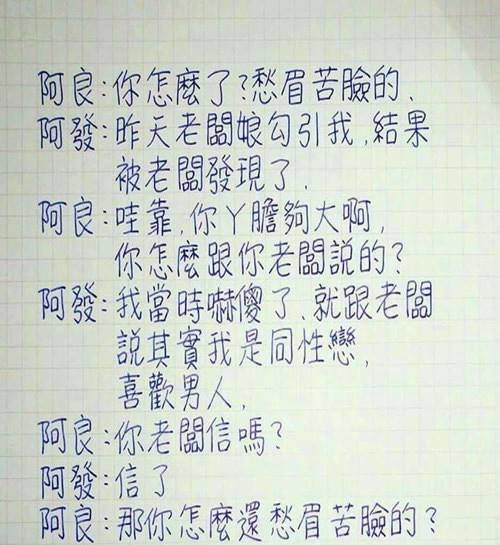 阿良:你怎麼了?愁眉苦臉的、
阿發:昨天老闆娘勾引我,結果
被老闆發現了、
阿良:哇靠,你丫膽夠大啊,
你怎麼跟你老闆說的?
阿發:我當時嚇傻了、就跟老闆
說其實我是同性戀,
喜歡男人,
阿良:你老闆信嗎?
阿發:信了
阿良:那你怎麼還愁眉苦臉的?